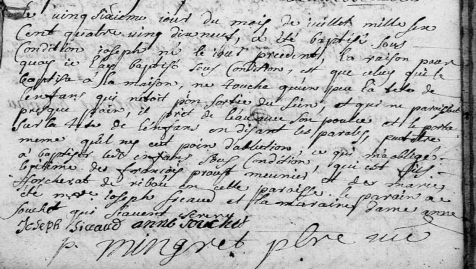 le vingt sixieme jour du mois de juillet mille six
cent quatre ving dixneuf, à été baptisé sous
condition joseph né le jour precedent, la raison pour
quoy ie l'ay baptisé sous condition, est que celuy qui le
baptisa a la maison, ne toucha que la teste de
l'enfant qui netoit poin sortie du sein, et qui ne paroissoit
presque poin, de l'eau que son pouce et la porta
sur la teste de l'enfant en disant les paroles, peut estre
meme qu'il ne eut poin d'ablution, ce qui m'a obligé
à baptiser cet enfant sous condition, qui est fils
legitime de françois proust meunier et de marie
de ribou en cette paroisse, le parain a
été joseph Sicaud et la maraine dame anne
Souchet qui scavent
Joseph Sicaud anne Souchet
p. Mingret pbre curé